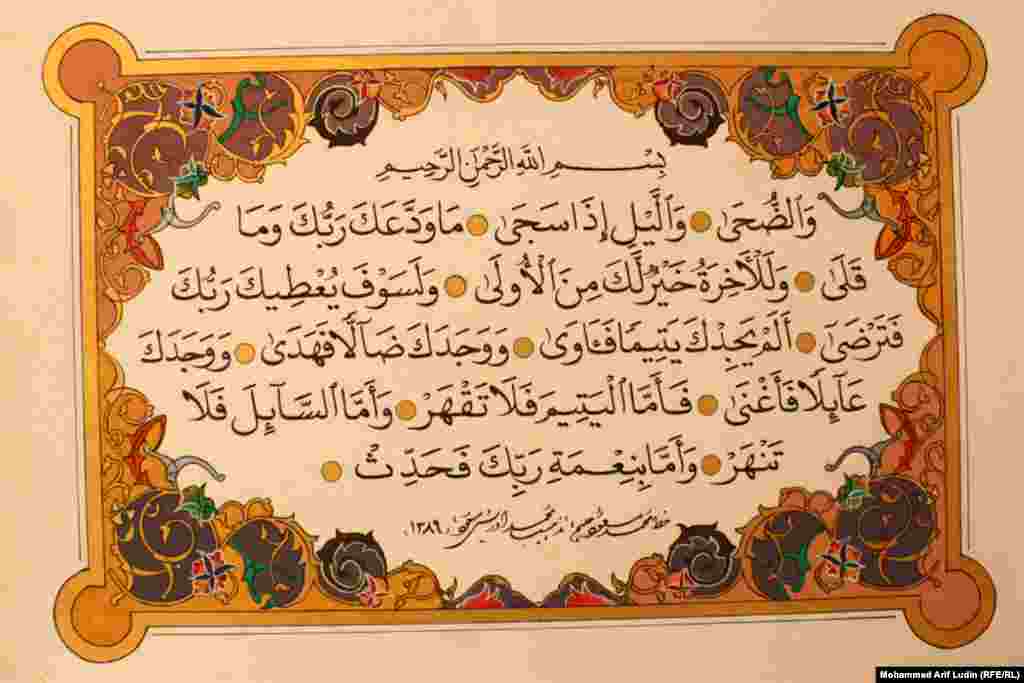 بِسْمِ اللَّهِ الرَّحْمٰنِ الرَّحِيمِ
وَالضُّحَىٰ وَالَّيْلِ إِذَا سَجَىٰ مَا وَدَّعَكَ رَبُّكَ وَمَا
قَلَىٰ وَلَلْآخِرَةُ خَيْرٌ لَّكَ مِنَ الْأُولَىٰ وَلَسَوْفَ يُعْطِيكَ رَبُّكَ
فَتَرْضَىٰ أَلَمْ يَجِدْكَ يَتِيمًا فَـَٔاوَىٰ وَوَجَدَكَ ضَآلًّا فَهَدَىٰ وَوَجَدَكَ
عَآئِلًا فَأَغْنَىٰ فَأَمَّا الْيَتِيمَ فَلَا تَقْهَرْ وَأَمَّا السَّآئِلَ فَلَا
تَنْهَرْ وَأَمَّا بِنِعْمَةِ رَبِّكَ فَحَدِّثْ
١٣٨٩
Mohammed Arif Ludin (RFE/RL)